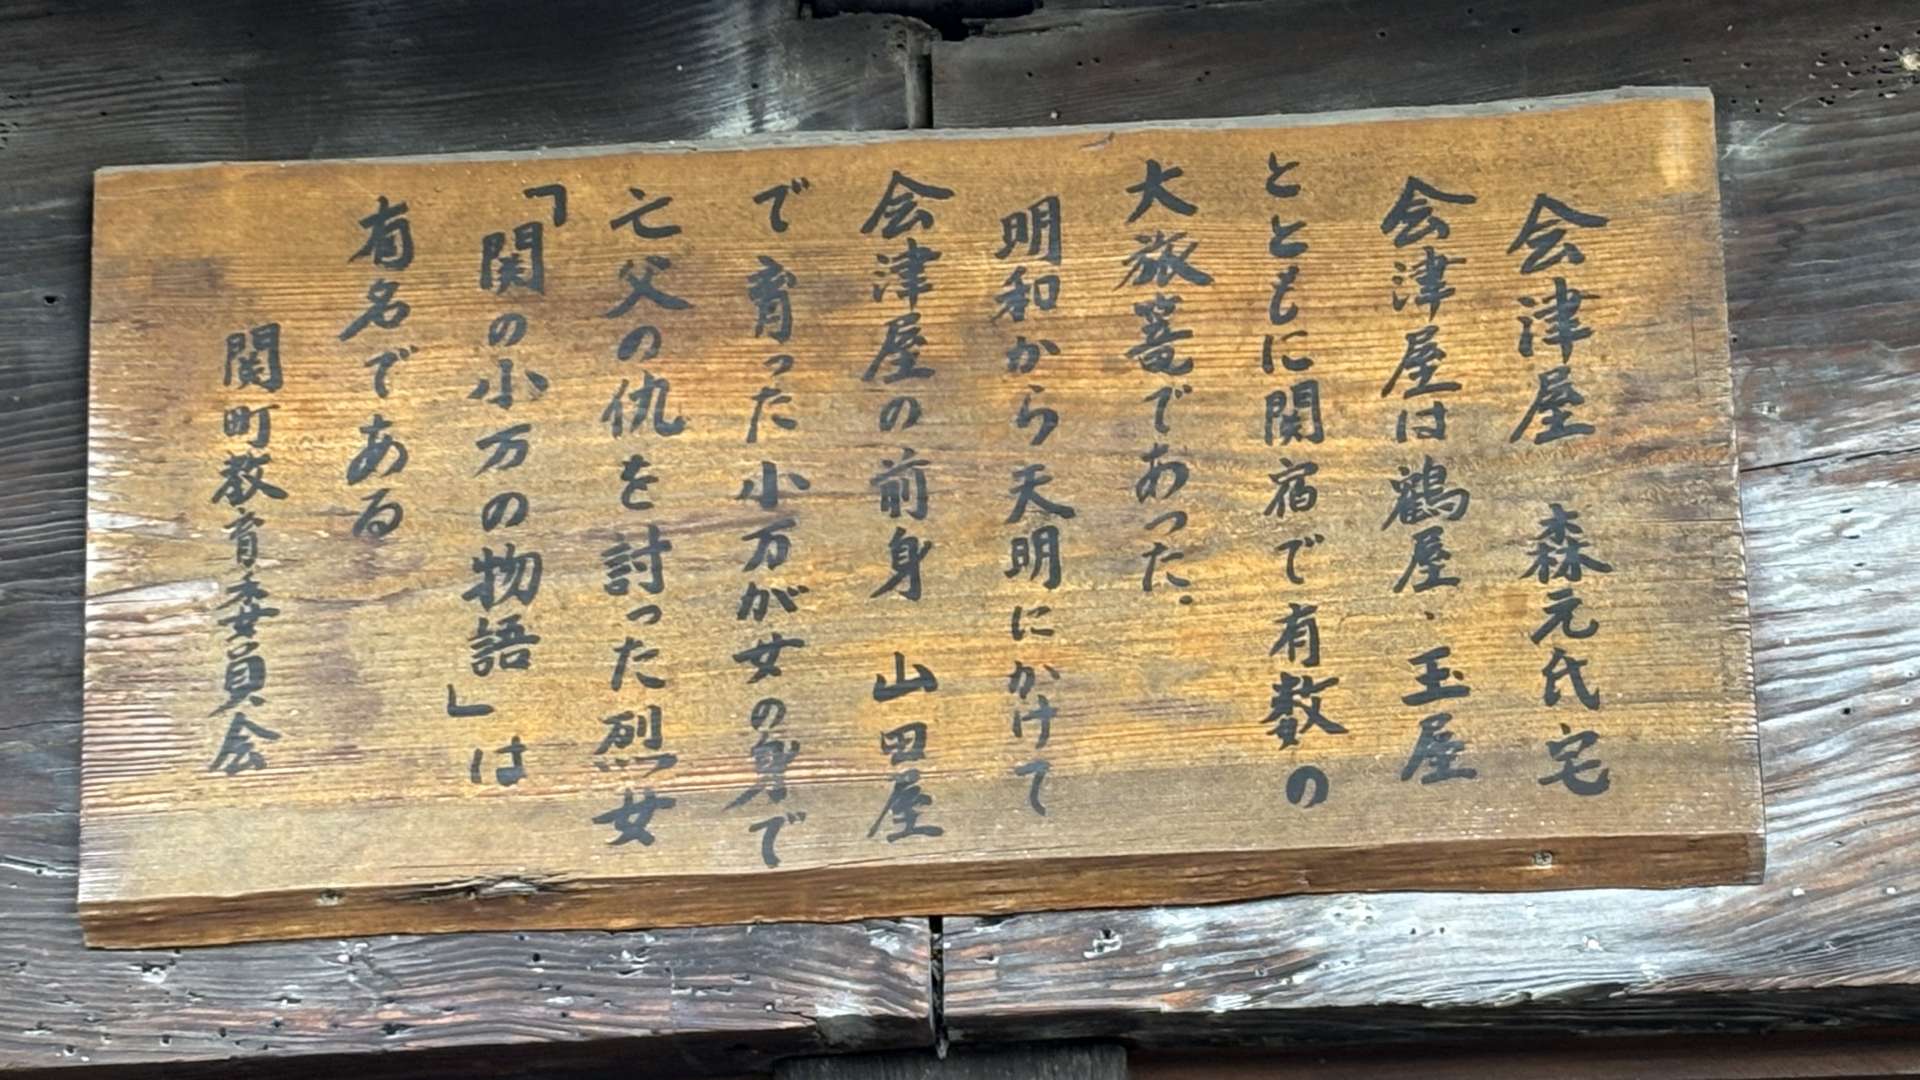 会津屋 森元氏宅
会津屋は鶴屋、玉屋
とともに関宿で有数の
大旅篭であった.
明和から天明にかけて
会津屋の前身 山田屋
で育った小万が女の身で
亡父の仇を討った烈女
「関の小万の物語」は
有名である
関町教育委員会